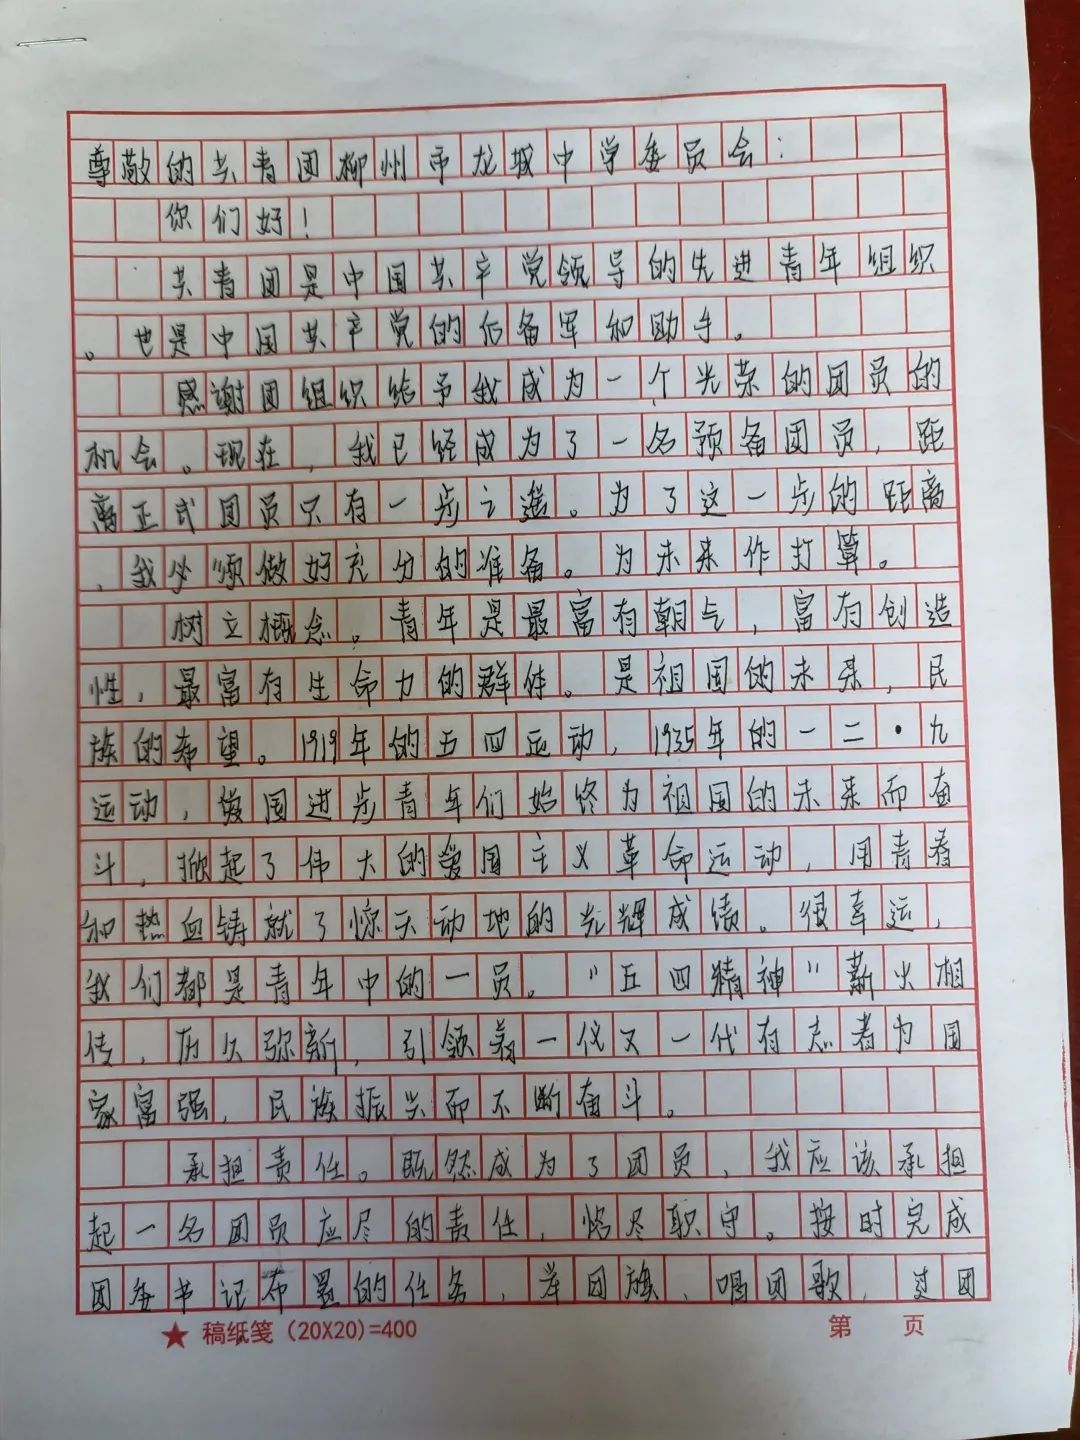 尊敬的共青团柳州市龙城中学委员会：
你们好！
共青团是中国共产党领导的先进青年组织
。也是中国共产党的后备军和助手。
感谢团组织给予我成为一个光荣的团员的
机会。现在，我已经成为了一名预备团员，距
离正式团员只有一步之遥。为了这一步的距离
，我必须做好充分的准备。为未来作打算。
树立概念。青年是最富有朝气，富有创造
性，最富有生命力的群体。是祖国的未来，民
族的希望。1919年的五四运动，1935年的一二·九
运动，爱国进步青年们始终为祖国的未来而奋
斗，掀起了伟大的爱国主义革命运动，用青春
和热血铸就了惊天动地的光辉成绩。很幸运，
我们都是青年中的一员。“五四精神”薪火相
传，历久弥新，引领着一代又一代有志者为国
家富强，民族振兴而不断奋斗。
承担责任。既然成为了团员，我应该承担
起一名团员应尽的责任，恪尽职守。按时完成
团委书记布置的任务，举团旗，唱团歌，过团
★ 稿纸笺（20X20)=400 第 页